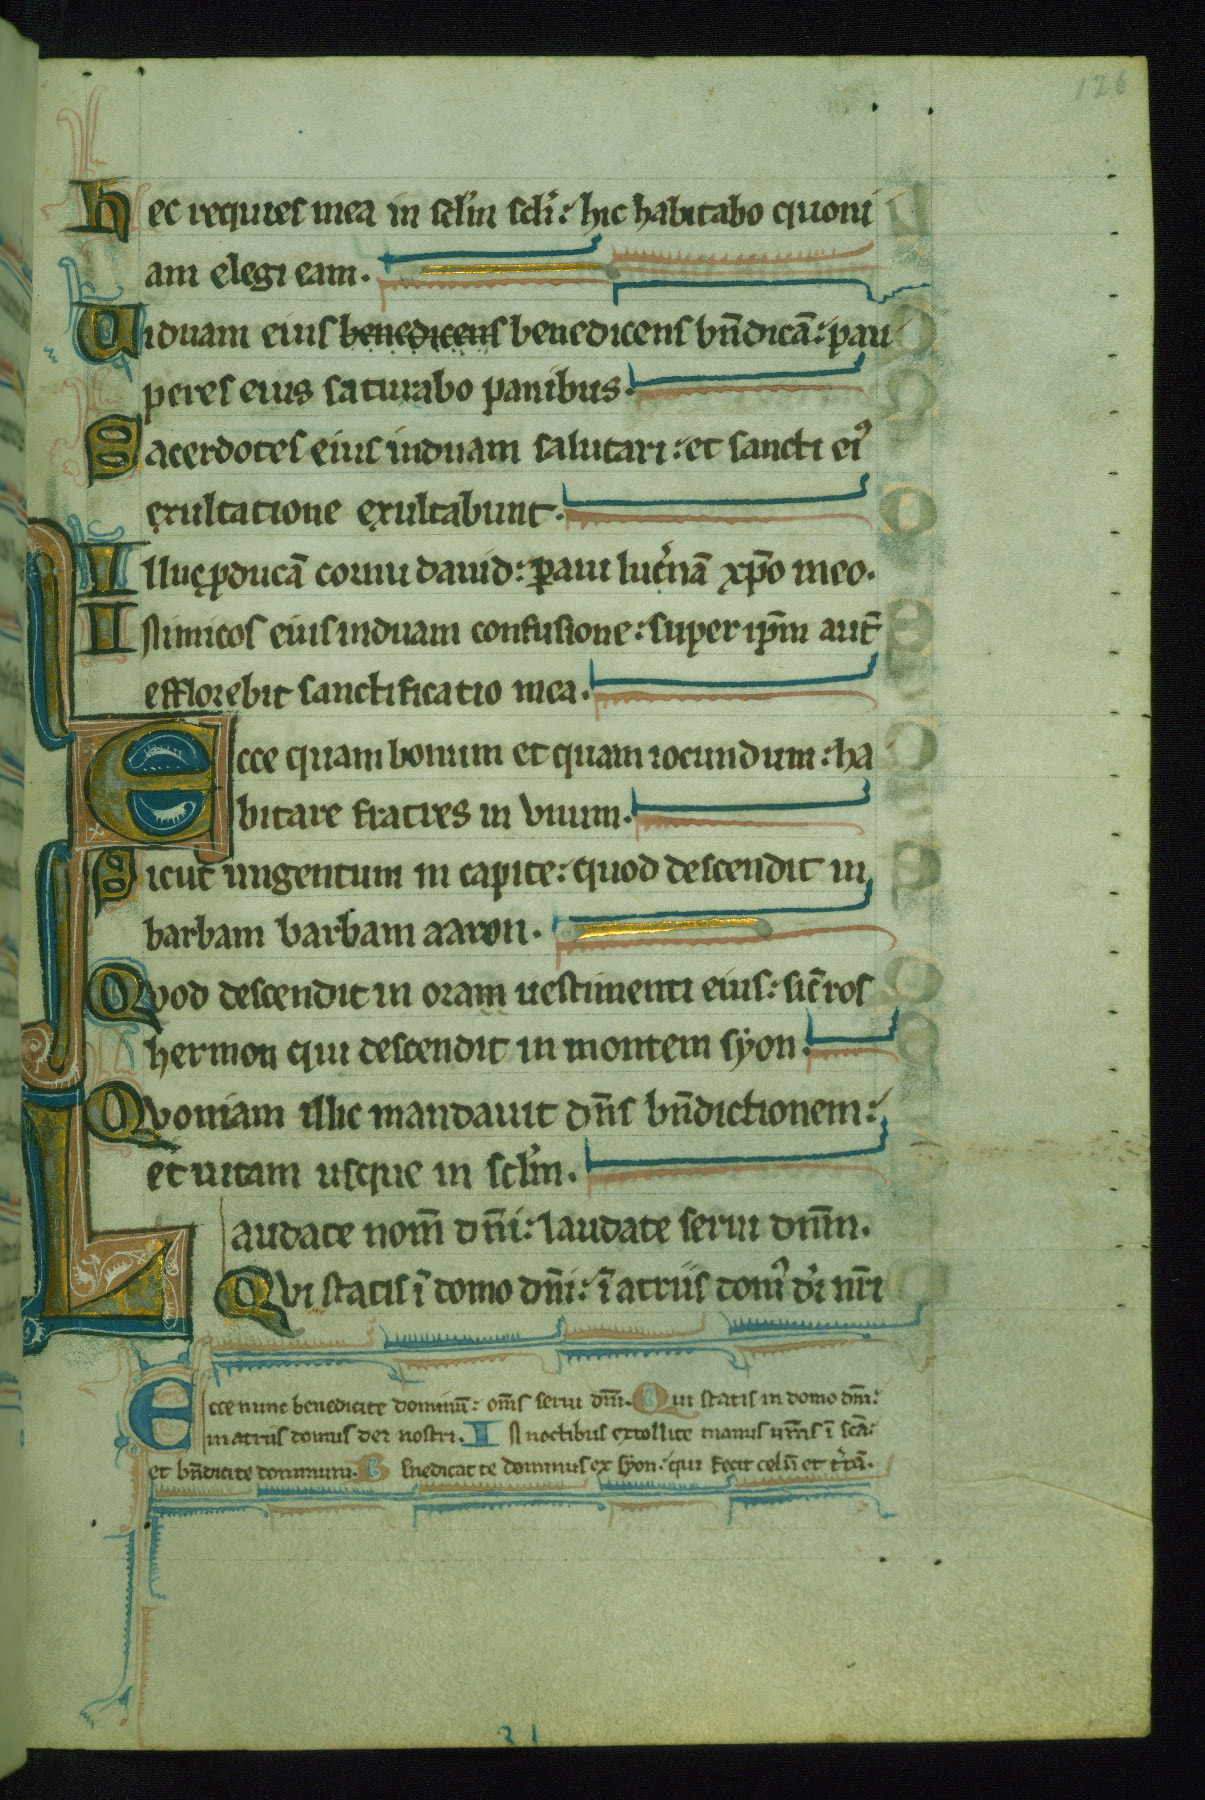 126
Hec requies mea in sclm scli: hic habitabo quoni
am elegi eam.
Uiduam eius benedicens benedicens bn̄dicā: pau
peres eius saturabo panibus.
Sacerdotes eius induam salutari: et sancti ei᾽
exultatione exultabunt.
Illuc ꝓducā cornu dauid: ꝑaui luc̓nā xp̄o meo.
Inimicos eius induam confusione: super ip̄m aut̄
efflorebit sanctificatio mea.
Ecce quam bonum et quam iocundum: ha
bitare fratres in unum.
Sicut ungentum in capite: quod descendit in
barbam barbam aaron.
Quod descendit in oram uestimenti eius: sic̄ ros
hermon qui descendit in montem syon.
Quoniam illic mandauit dn̄s bn̄dictionem:
et uitam usque in sclm.
Laudate nom̄ dn̄i: laudate serui dnm̄.
Qui statis ī domo dn̄i: ī atriis dom᾽ di̓ nr̄i
Ecce nunc benedicite dominū: om̄s serui dn̄i. Qui statis in domo dn̄i:
in atriis domus dei nostri. In noctibus extollite manus ur̄as ī scā:
et bn̄dicite dominum. Benedicat te dominus ex syon: qui fecit celū et t̓rā.
31